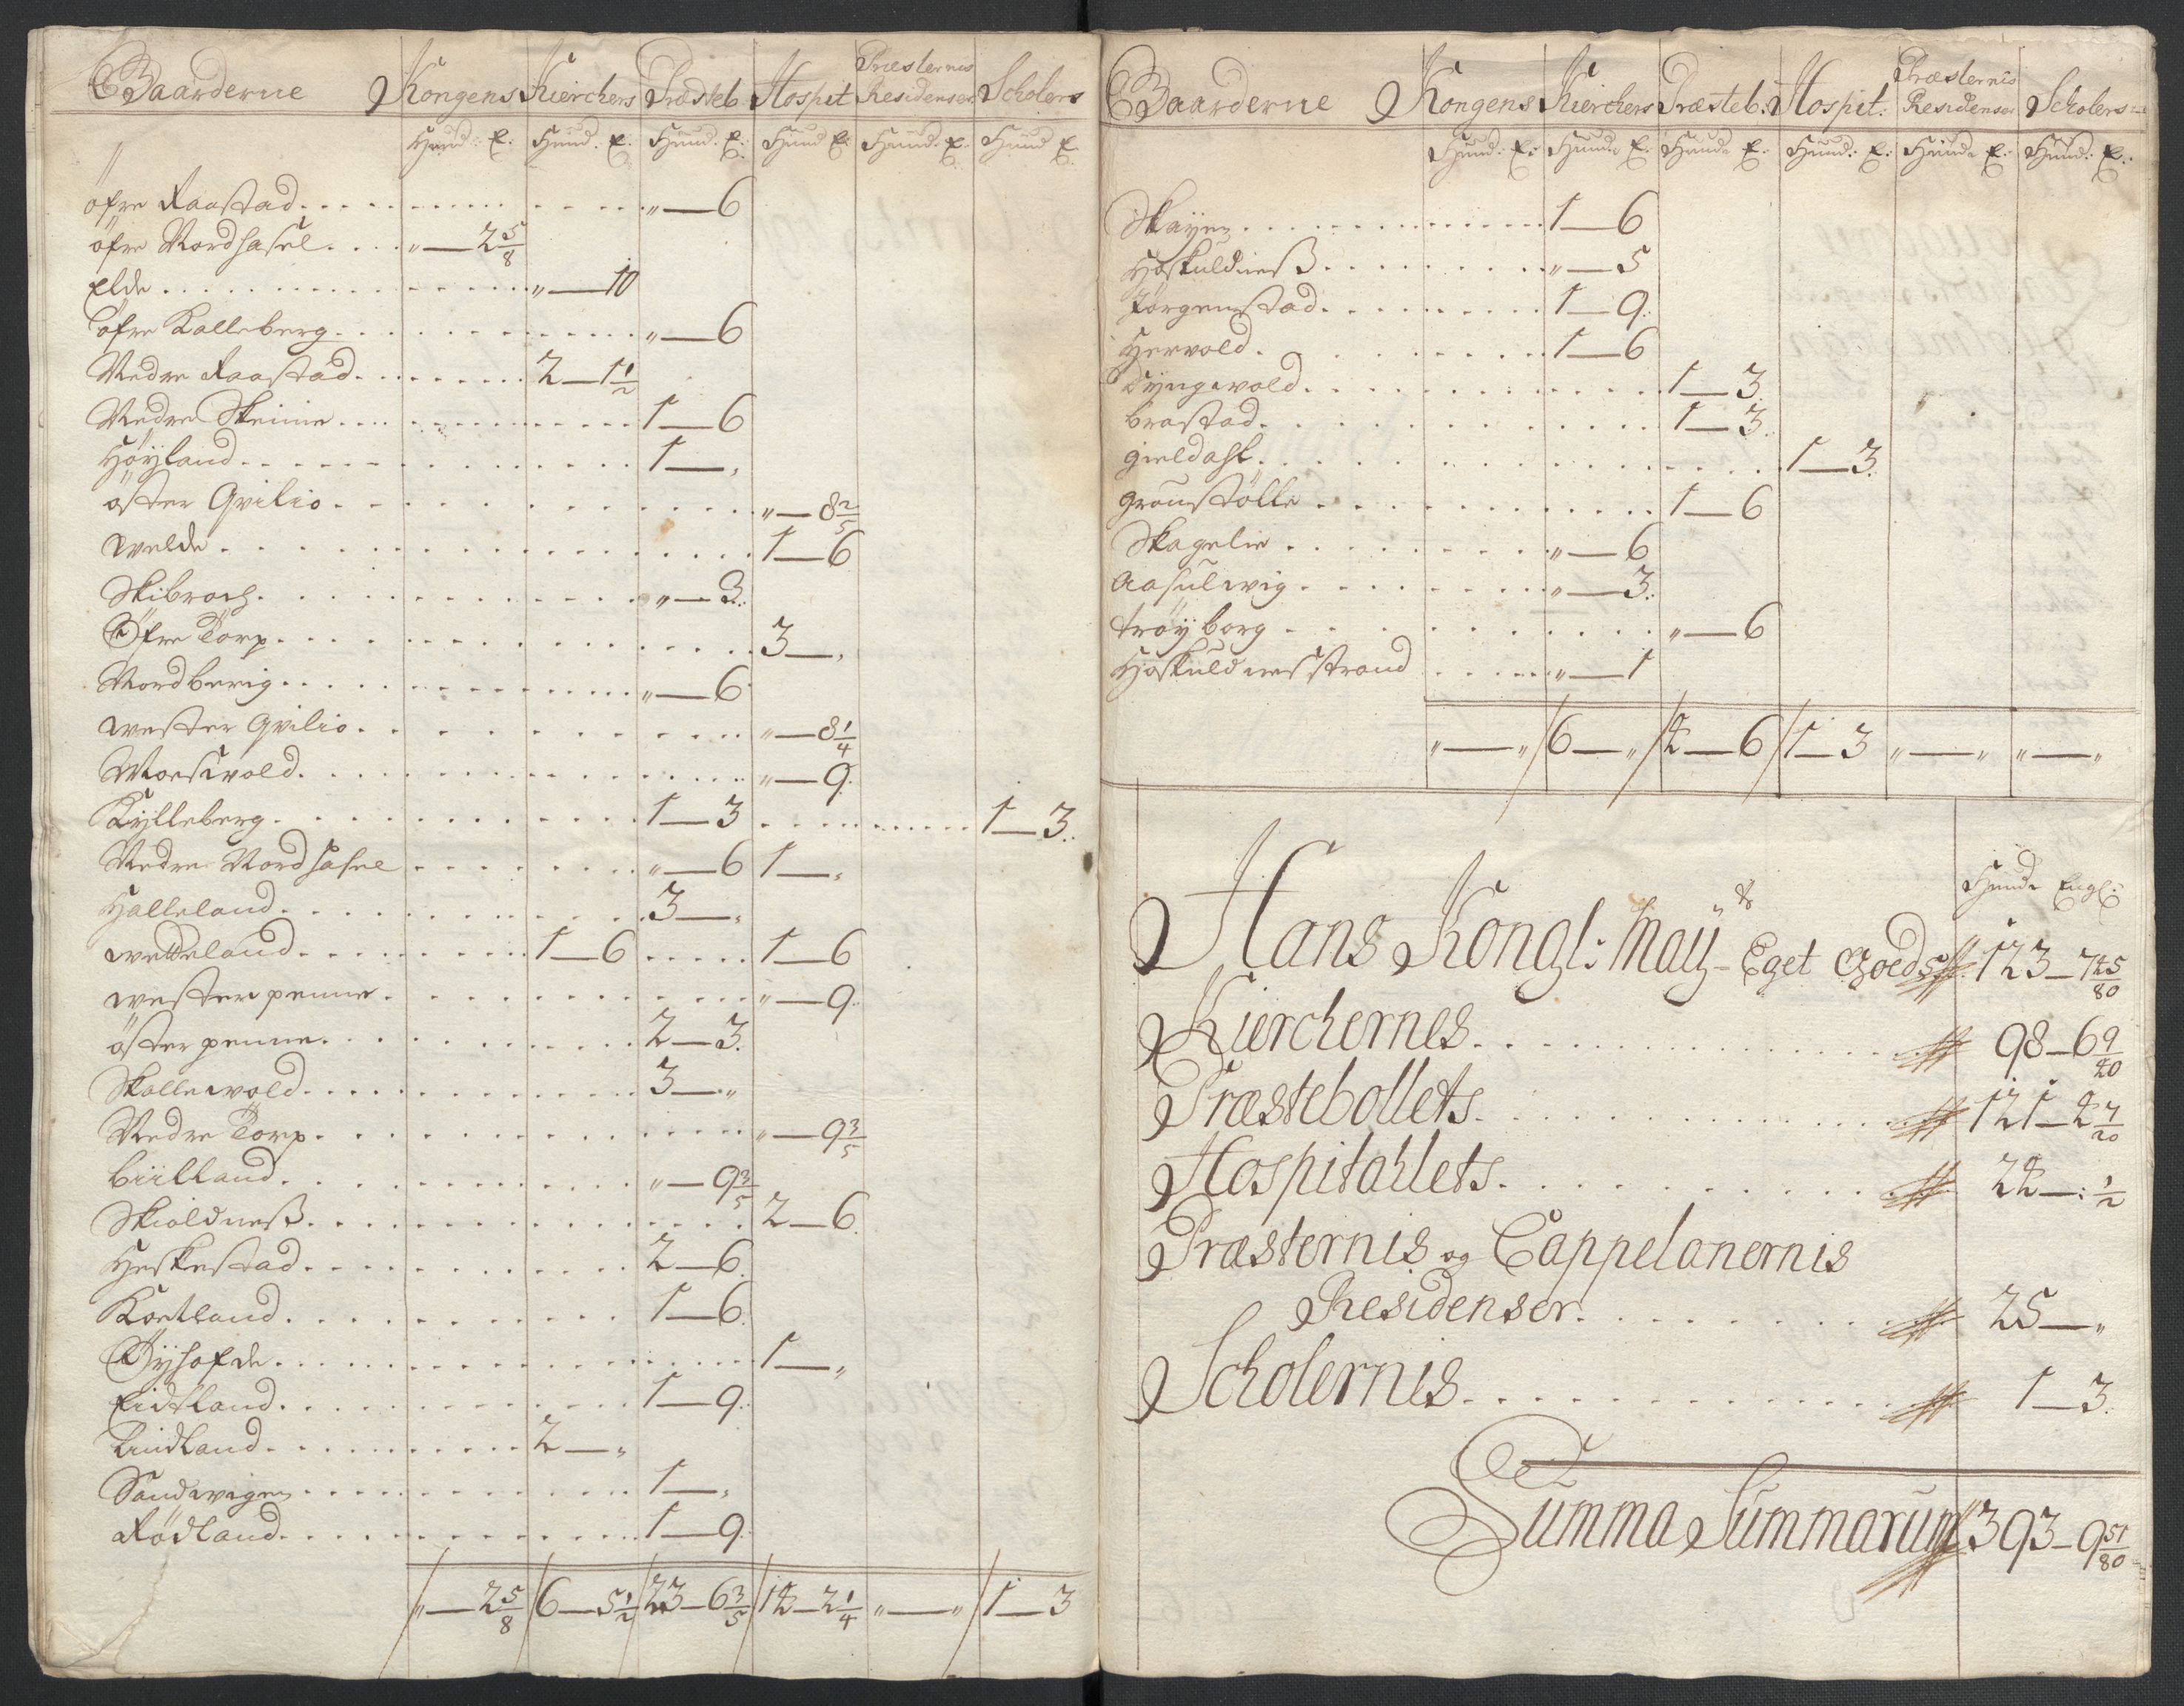 Gaarderne Kongens Kierchers Præsteb. Hospit Præsternis Residenser Scholers
Hund: E. Hund. E. Hund. E: Hund E: Hund. E. Hund E.
öfre Raastad "—6
öfre Nordhasel "—2 5/8
Elde "—10
öfre Kalleberg "—6
Nedre Raastad 2—1 1/2
Nedre Skeiine 1—6
Höyland 1—"
öster Qvilio "—8 2/5
Welde 1—6
Skibroch "—3.
Öfre Torp 3—"
Nordberig "—6
wester Qvilio "—8 1/4
Moeswold "—9.
Kylleberg 1—3 1—3.
Nedre Nordhasel "—6 1—"
Halleland 3—"
wetteland 1—6 1—6
wester penne "—9.
öster penne 2—3.
Skollewold 3—"
Nedre Torp "—9 3/5
biilland "—9 3/5
Skioldness 2—6.
Heskestad 2—6.
Kortland 1—6.
Dyhofde 1—"
Eidsland 1—9.
Lindland 2—"
Sandwigen 1—"
Rödland 1—9.
"—2 5/8 6—5 1/2 23—6 3/5 14—2 1/4 "—" 1—3
Gaarderne Kongens Kierchers Præsteb: Hospit: Præsternis Residenser Scholers
Hund: E: Hunde E. Hunde E. Hund: E: Hunde E: Hund: E:
Skayen 1—6
Höskuldness "—5
Jörgenstad 1—9.
Hervold 1—6
Dyngevold 1—3.
brastad 1—3.
gieldahl 1—3.
grönstölle 1—6
Skagelie "—6
Aasulwig "—3.
tröyborg "—6
Höskuldnesstrand "—1
"—" 6—" 4—6 1—3 "—" "—"
Hunde Engl:
Hans Kongl: May Eget Goeds 123—7 45/80
Kierchernes 98—6 9/40
Præstebollets 121—4 7/20
Hospitahlets 24—: 1/2
Præsternis og Cappelanernis
Residenser 25—"
Scholernis 1—3.
Summa Summarum 393—9 51/80